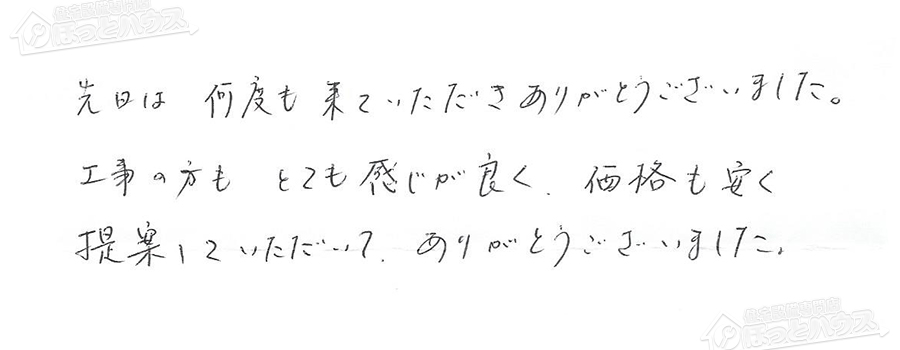 住宅設備専門店
ほっとハウス
先日は 何度も来ていただきありがとうございました。
工事の方も とても感じが良く、価格も安く
提案していただいて、ありがとうございました。
住宅設備専門店
ほっとハウス